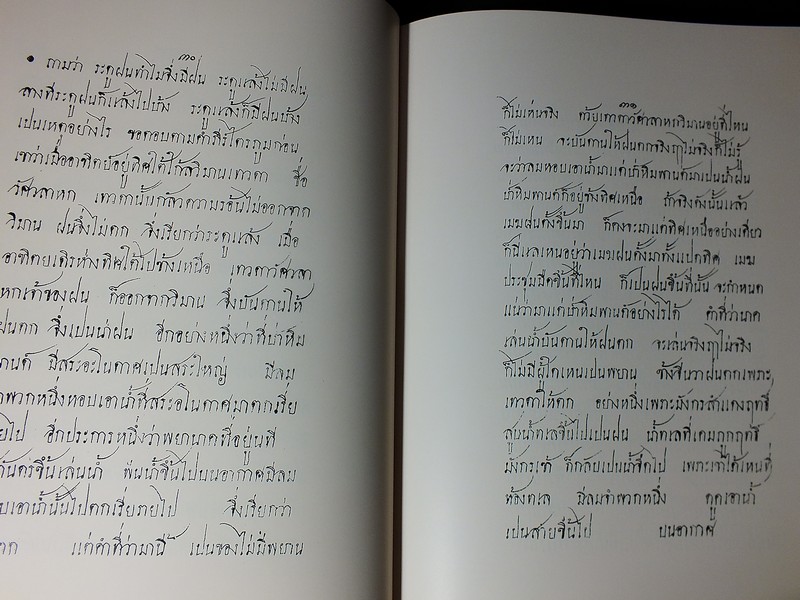 ๓๐
• ถามว่า ระดูฝนทำไมจึ่งมีฝน ระดูแล้งไม่มีฝน
ลางทีระดูฝนก็แล้งไปบ้าง ระดูแล้งก็มีฝนบ้าง
เปนเหตุอย่างไร ขอตอบตามคำภีร์ไตรภูมก่อน
เขาว่าเมื่ออาทิตย์อยู่ทิศใต้ใกล้วิมานเทวดา ชื่อ
วัศวลาหก เทวดานั้นกลัวความร้อนไม่ออกจาก
วิมาน ฝนจึ่งไม่ตก จึ่งเรียกว่าระดูแล้ง เมื่อ
อาทิตยเดิรห่างทิศใต้ไปข้างเหนือ เทวดาวัศวลา
หกเจ้าของฝน ก็ออกจากวิมาน จึ่งบันดานให้
ฝนตก จึ่งเปนน่าฝน อีกอย่างหนึ่งว่าที่ป่าหิม
พานต์ มีสระอะโนดาดเปนสระใหญ่ มีลม
จำพวกหนึ่งหอบเอาน้ำที่สระอโนดาศมาตกเรี่ย
รายไป อีกประการหนึ่งว่าพยานาคที่อยู่นที
สีทันดรขึ้นเล่นน้ำ พ่นน้ำขึ้นไปบนอากาศมีลม
หอบเอาน้ำนั้นไปตกเรี่ยรายไป จึ่งเรียกว่า
ฝนตก แต่คำที่ว่ามานี้ เปนของไม่มีพยาน
๓๑
ก็ไม่เห็นจริง ด้วยเทวดาวัศวลาหกวิมานอยู่ที่ไหน
ก็ไม่เหน จะบันดานให้ฝนตกจริงฤๅไม่จริงก็ไม่รู้
จะว่าลมหอบเอาน้ำมาแต่ป่าหิมพานต์มาเปนน้ำฝน
ป่าหิมพานต์ก็อยู่ข้างทิศเหนือ ถ้าจริงดังนั้นแล้ว
เมฆฝนตั้งขึ้นมา ก็คงจะมาแต่ทิศเหนืออย่างเดียว
ก็นี่แลเหนอยู่ว่าเมฆฝนตั้งมาทั้งแปดทิศ เมฆ
ประชุมมืดขึ้นที่ไหน ก็เปนฝนขึ้นที่นั้น จะกำหนด
แน่ว่ามาแต่ป่าหิมพานต์อย่างไรได้ คำที่ว่านาค
เล่นน้ำบันดานให้ฝนตก จะเล่นจริงฤๅไม่จริง
ก็ไม่มีผู้ใดเหนเปนพยาน ซึ่งจีนว่าฝนตกเพราะ
เทวดาให้ตก อย่างหนึ่งเพราะมังกรสำแดงฤทธิ์
สูบน้ำทเลขึ้นไปเปนฝน น้ำทเลที่เคมถูกฤทธิ์
มังกรเข้า ก็กลับเปนน้ำจืดไป เพราะเขาได้เหนที่
ท้องทเล มีลมจำพวกหนึ่ง ดูดเอาน้ำ
เปนสายขึ้นไป บนอากาศ